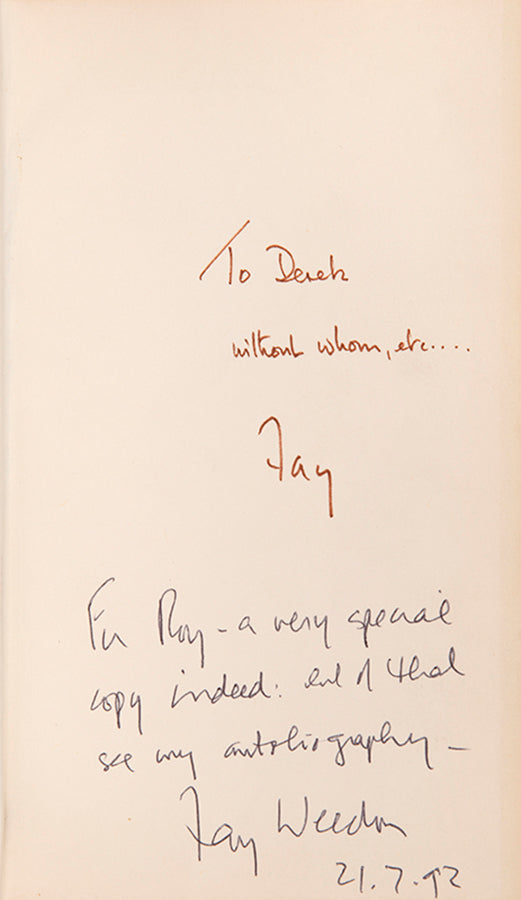 To Derek
without whom, etc....
Fay
For Roy - a very special
copy indeed: end of that
see my autobiography -
Fay Weldon
21.7.92